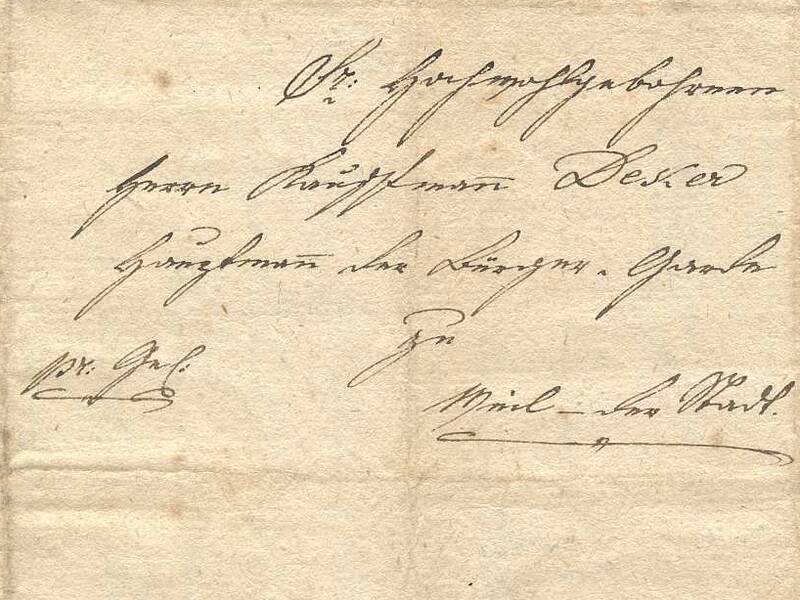 Sr: Hochwohlgebohrnen
Herrn Kauffmañ Decker
Hauptmañ der Bürger-Garde
zu
pr: Gel:
Weil - der Stadt.